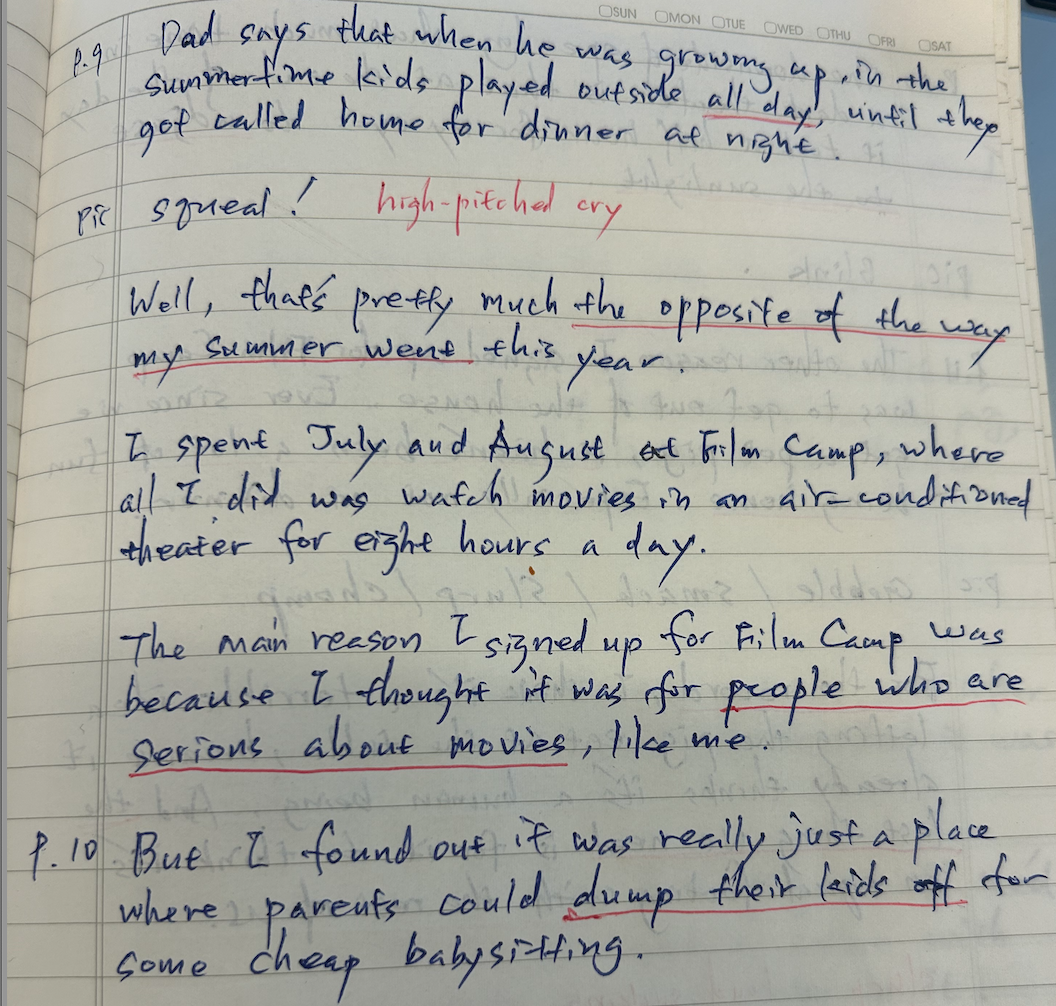 SUN MON TUE WED THU FRI SAT
P.9 Dad says that when he was growing up, in the
summertime kids played outside all day, until they
got called home for dinner at night.
Pic squeal! high-pitched cry
Well, that's pretty much the opposite of the way
my summer went this year.
I spent July and August at Film Camp, where
all I did was watch movies in an air-conditioned
theater for eight hours a day.
The main reason I signed up for Film Camp was
because I thought it was for people who are
serious about movies, like me.
P.10 But I found out it was really just a place
where parents could dump their kids off for
some cheap babysitting.